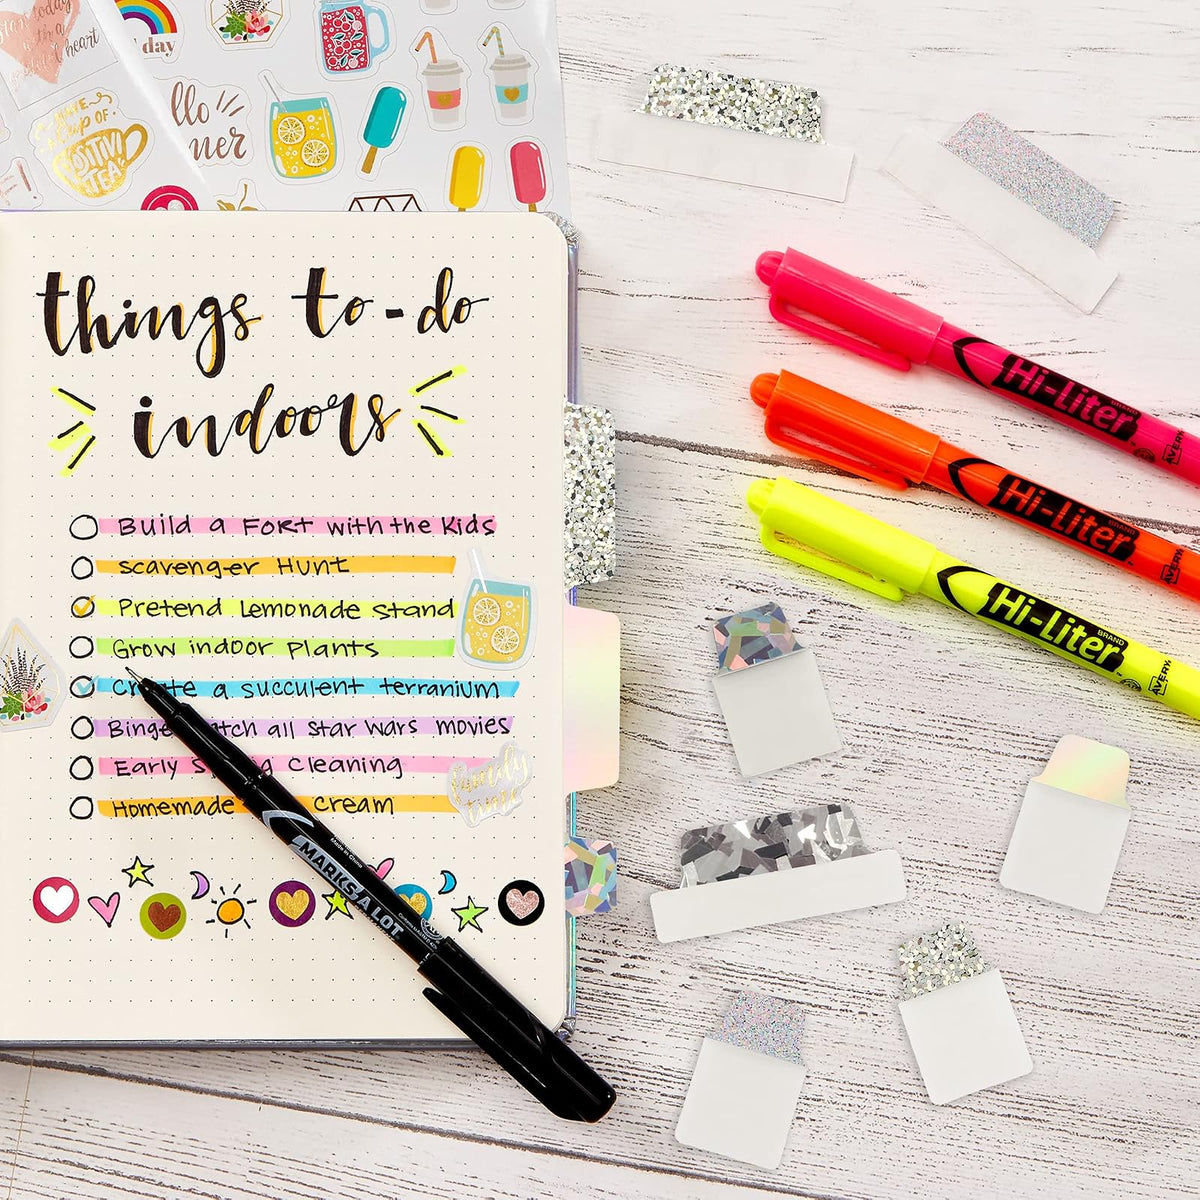 today
with a
grateful heart
day
HAVE
a cup of
POSITIVI
TEA
llo
mer
things to-do
indoors
Build a FORT with the Kids
Scavenger Hunt
Pretend Lemonade stand
Grow indoor plants
Create a succulent terranium
Binge watch all star wars movies
Early Spring Cleaning
Homemade Cream
family
time
MARKS A LOT
Made in China
Hi-Liter
BRAND
AVERY
Hi-Liter
BRAND
AVERY
Hi-Liter
BRAND
AVERY